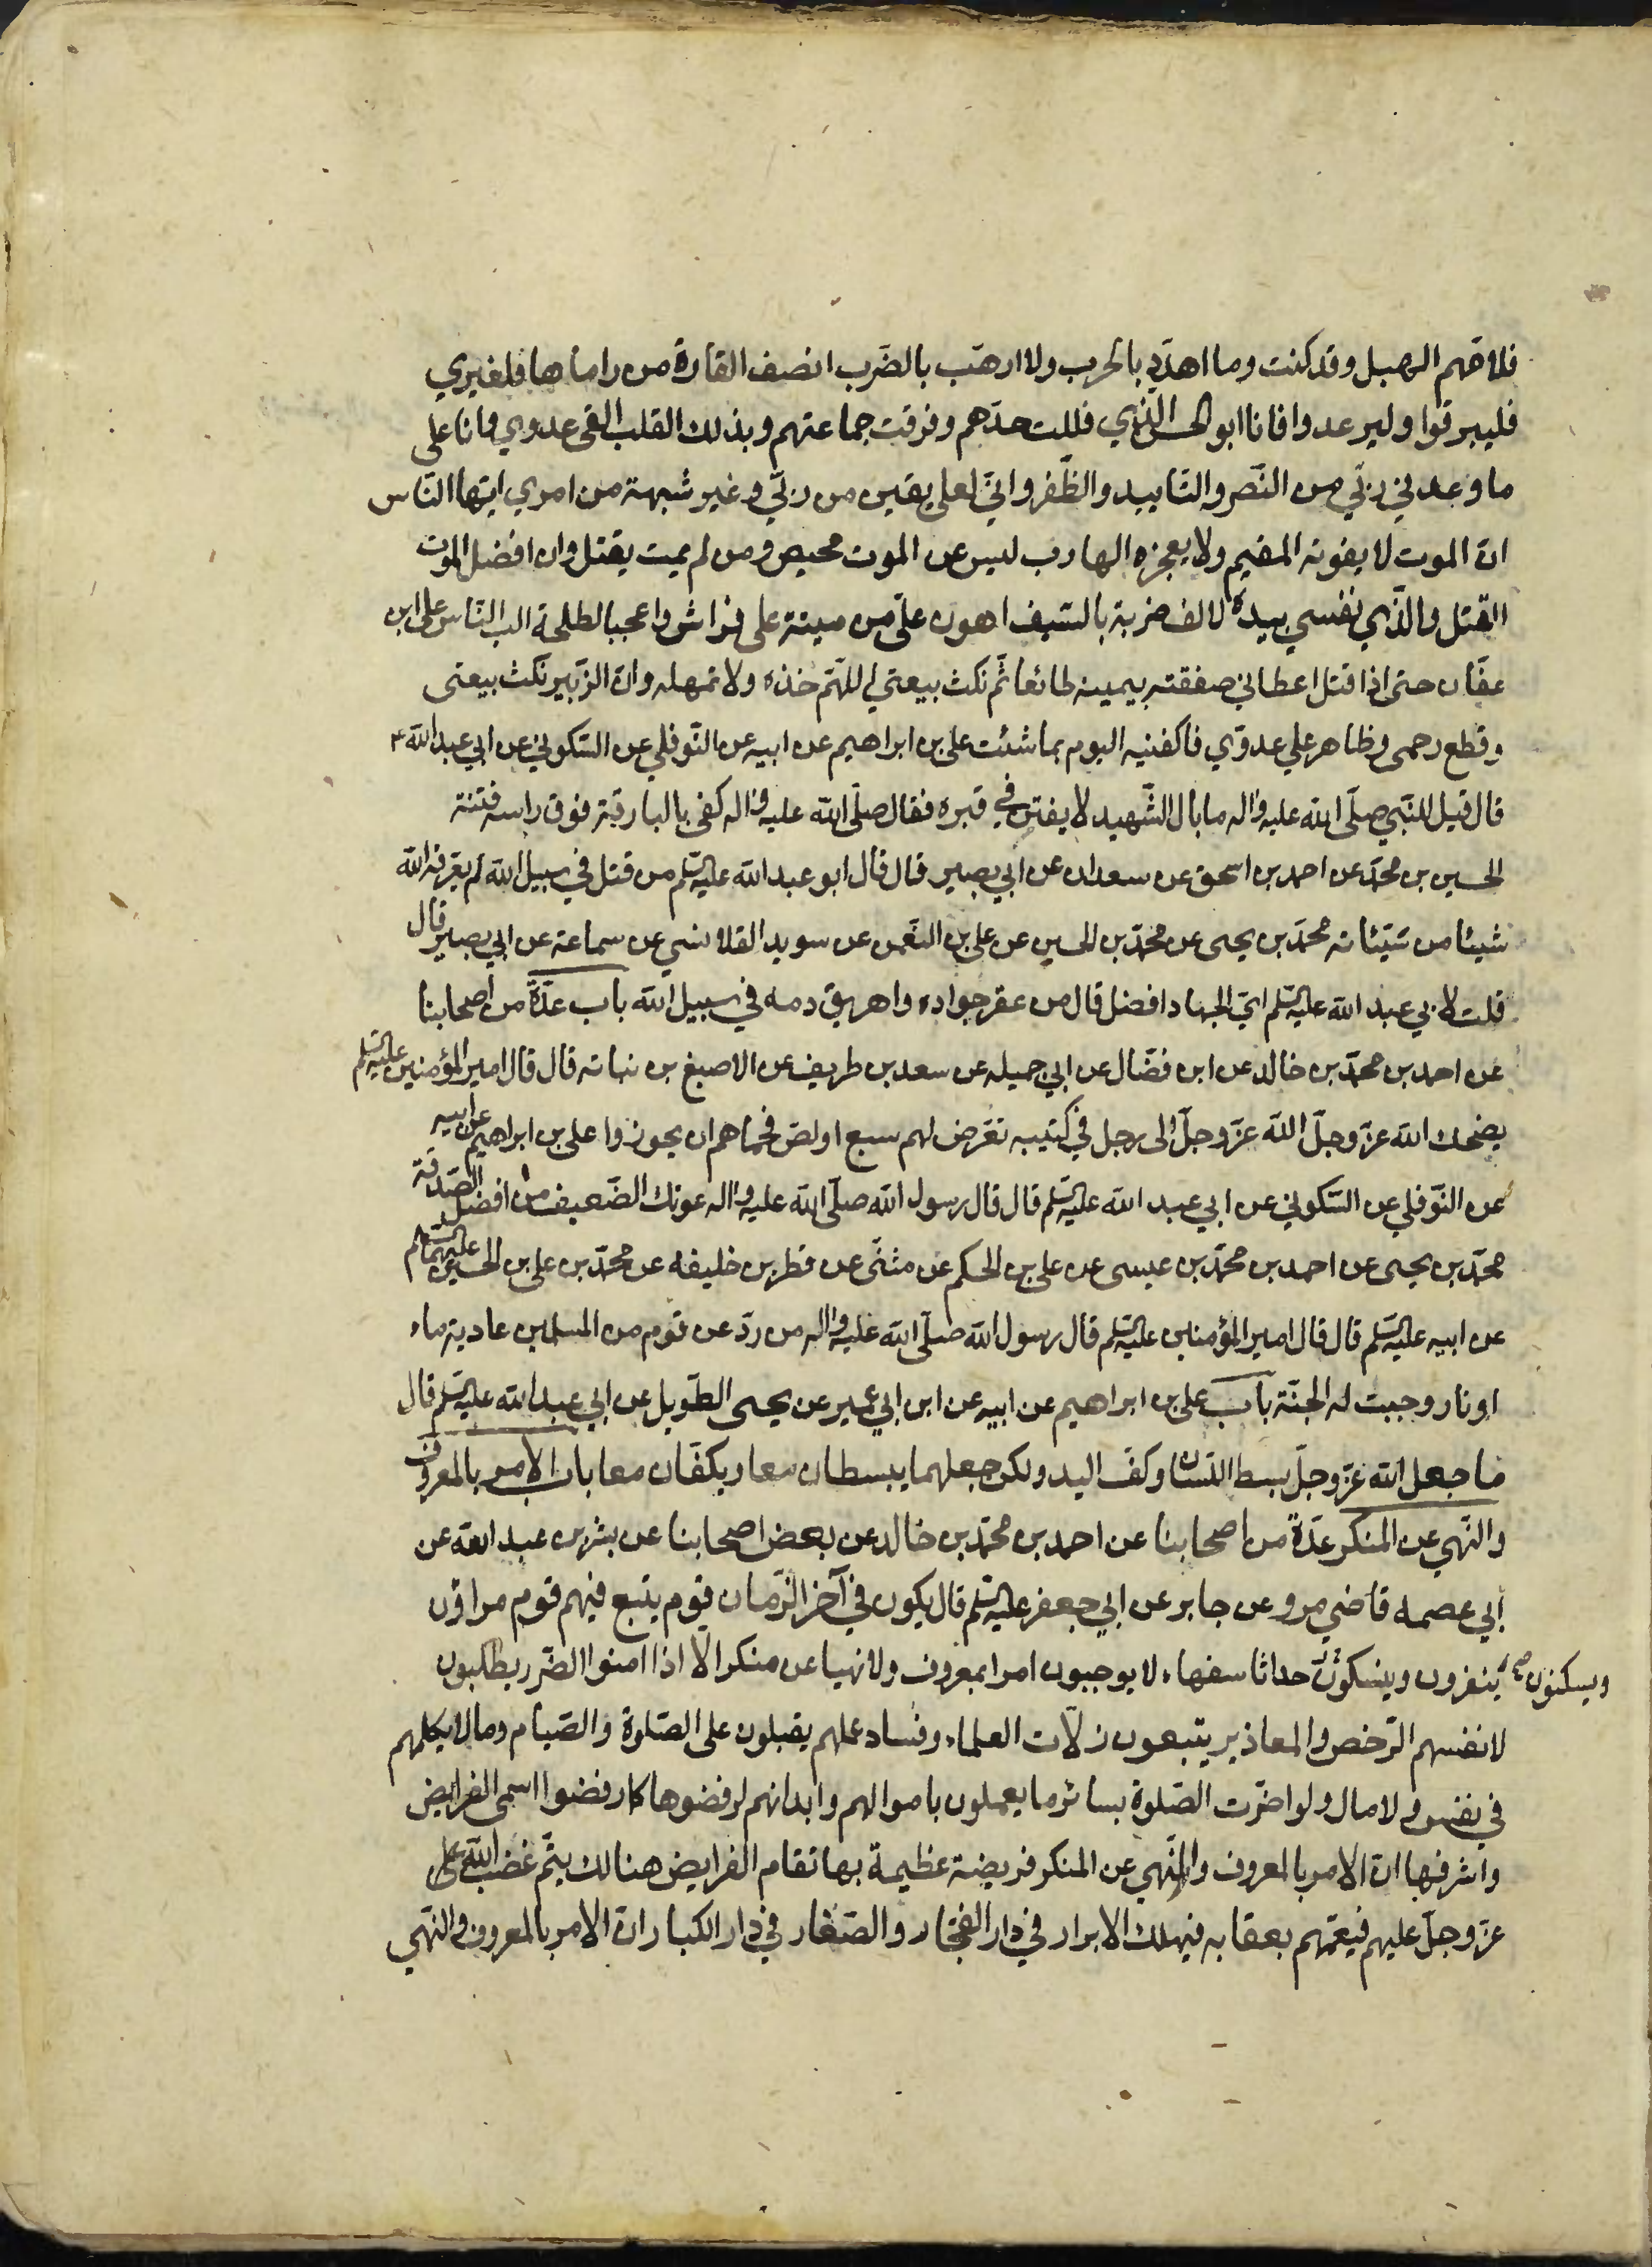 فلامّهم الهبل وقد كنت وما اهدّد بالحرب ولا ارهّب بالضّرب انصف القارة من راماها فلغيري
فليبرقوا وليرعدوا فانا ابو الحسن الّذي فللت حدّهم وفرقت جماعتهم وبذلك القلب القى عدوي وانا على
ما وعدني ربّي من النّصر والتّاييد والظّفر وانّي لعلى يقين من ربّي وغير شبهة من امري ايّها النّاس
انّ الموت لا يفوته المقيم ولا يعجزه الهارب ليس عن الموت محيص ومن لم يمت يقتل وان افضل الموت
القتل والّذي نفسي بيده لالف ضربة بالسّيف اهون علىّ من ميتة على فراش واعجبا لطلحة الب النّاس على ابن
عفّان حتى اذا قتل اعطاني صفقته بيمينه طائعا ثّم نكث بيعتي اللهّم خذه ولا تمهله وانّ الزّبير نكث بيعتى
وقطع رحمى وظاهر علي عدوّي فاكفنيه اليوم بما شئت على بن ابراهيم عن ابيه عن النّوفلي عن السّكوني عن ابي عبد الله ع
قال قيل للنّبي صلّى الله عليه واله ما بال الشّهيد لا يفتن في قبره فقال صلّى الله عليه واله كفى بالبارقة فوق راسه فتنة
الحسين بن محمّد عن احمد بن اسحق عن سعدان عن ابي بصير قال قال ابو عبد الله عليه السّلم من قتل في سبيل الله لم يعّرفه الله
شيئا من سّيئاته محمّد بن يحيى عن محمّد بن الحسين عن على بن النعّمن عن سويد القلانسي عن سماعة عن ابي بصير قال
قلت لابي عبد الله عليه السّلم ايّ الجهاد افضل قال من عقر جواده واهريق دمه في سبيل الله باب عدّة من اصحابنا
عن احمد بن محمّد بن خالد عن ابن فضّال عن ابي جميله عن سعد بن طريف عن الاصبغ بن نباته قال قال امير المؤمنين عليه السّلم
يضحك الله عزّ وجلّ الله عزّ وجلّ الى رجل في كتيبه تعّرض لهم سبع او لصّ فحماهم ان يحوزوا على بن ابراهيم عن ابيه
عن النّوفلي عن السّكوني عن ابي عبد الله عليه السّلم قال قال رسول الله صلّى الله عليه واله عونك الضّعيف من افضل الصّدقة
محمّد بن يحيى عن احمد بن محمّد بن عيسى عن على بن الحكم عن مثنّى عن فطر بن خليفه عن محمّد بن على بن الحسين عليهما السّلم
عن ابيه عليه السّلم قال قال امير المؤمنين عليه السّلم قال رسول الله صلّى الله عليه واله من ردّ عن قوم من المسلمين عادية ماء
او نار وجبت له الجنّة باب على بن ابراهيم عن ابيه عن ابن ابي عمير عن يحيى الطّويل عن ابي عبد الله عليه السّلم قال
ما جعل الله عزّ وجلّ بسط اللّسان وكفّ اليد ولكن جعلهما يبسطان معا ويكفّان معا باب الامر بالمعروف
والنّهي عن المنكر عدّة من اصحابنا عن احمد بن محمّد بن خالد عن بعض اصحابنا عن بشر بن عبد الله عن
ابي عصمه قاضي مرو عن جابر عن ابي جعفر عليه السّلم قال يكون في آخر الزّمان قوم يتبع فيهم قوم مراؤن
ويسكنون صح ينفرون وينسكون حداثا سفهاء لا يوجبون امرا بمعروف ولا نهيا عن منكر الّا اذا امنوا الضّرر يطلبون
لانفسهم الرّخص والمعاذير يتبعون زلّات العلماء وفساد عملهم يقبلون على الصّلوة والصّيام وما لا يكلمهم
في نفس ولا مال ولو اضرّت الصّلوة بسائر ما يعملون باموالهم وابدانهم لرفضوها كما رفضوا اسمى الفرايض
واشرفها انّ الامر بالمعروف والنّهي عن المنكر فريضة عظيمة بها تقام الفرايض هنالك يتّم غضب الله على
عزّ وجلّ عليهم فيعمّهم بعقابه فيهلك الابرار في دار الفجّار والصّغار في دار الكبار انّ الامر بالمعروف والنّهي